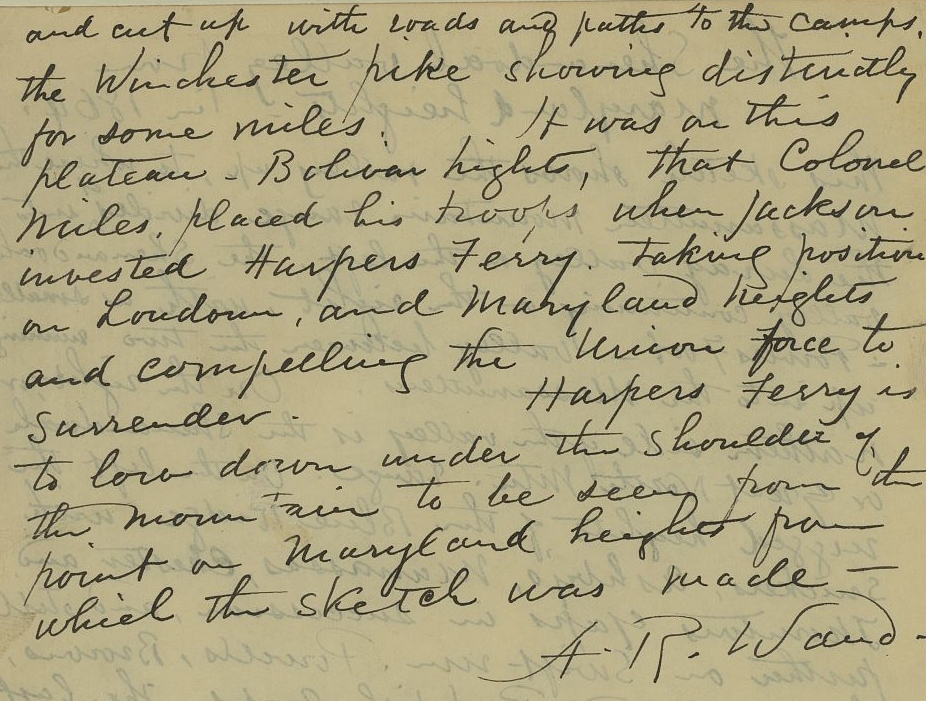 and cut up with roads and paths to the camps.
the Winchester pike showing distinctly
for some miles. It was on this
plateau - Bolivar hights, that Colonel
Miles, placed his troops when Jackson
invested Harpers Ferry. Taking position
on Loudoun, and Maryland heights
and compelling the Union force to
Surrender. Harpers Ferry is
to low down under the shoulder of
the mountain to be seen from the
point on Maryland heights from
which the sketch was made —
A. R. Waud.